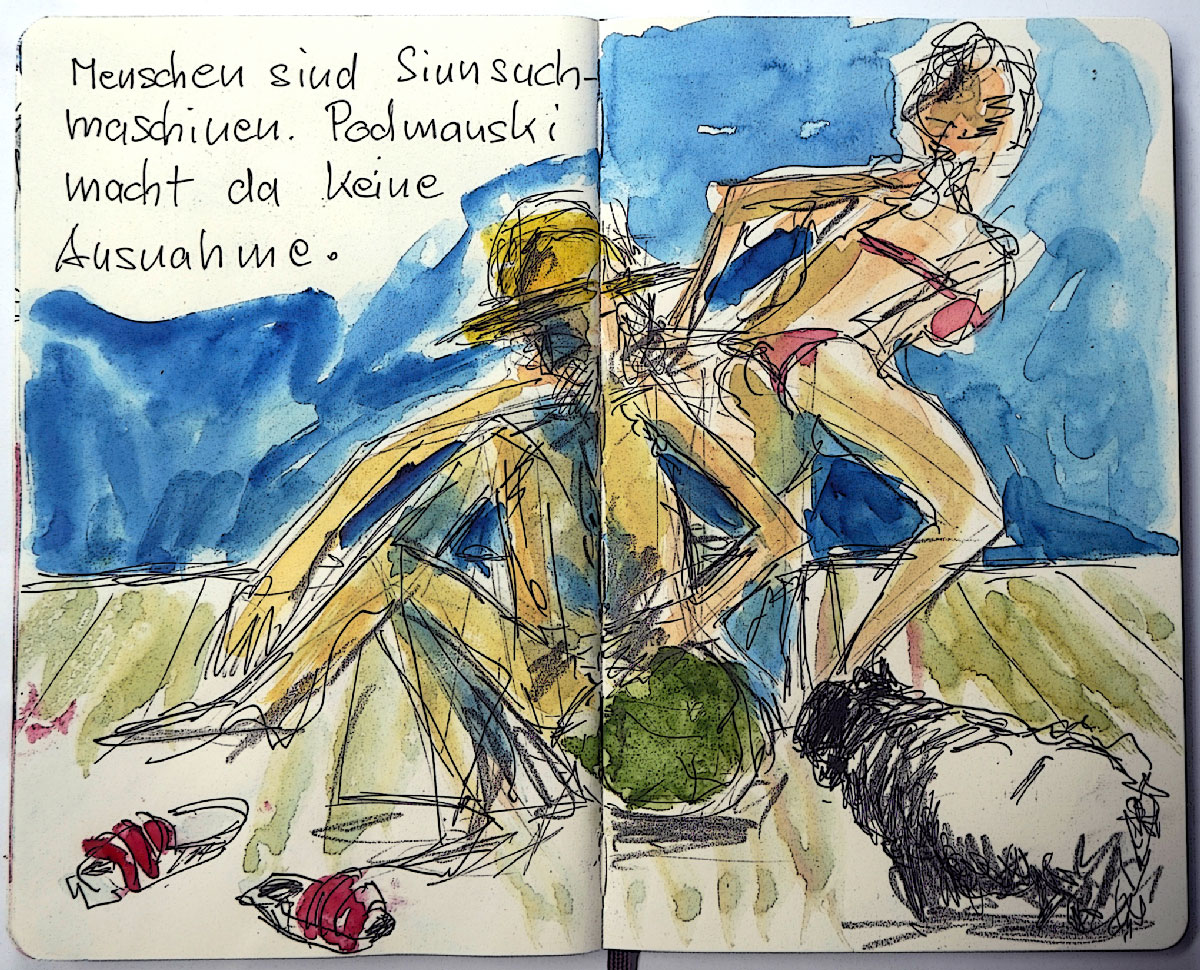 Menschen sind Sinnsuch-
maschinen. Podmanski
macht da keine
Ausnahme.